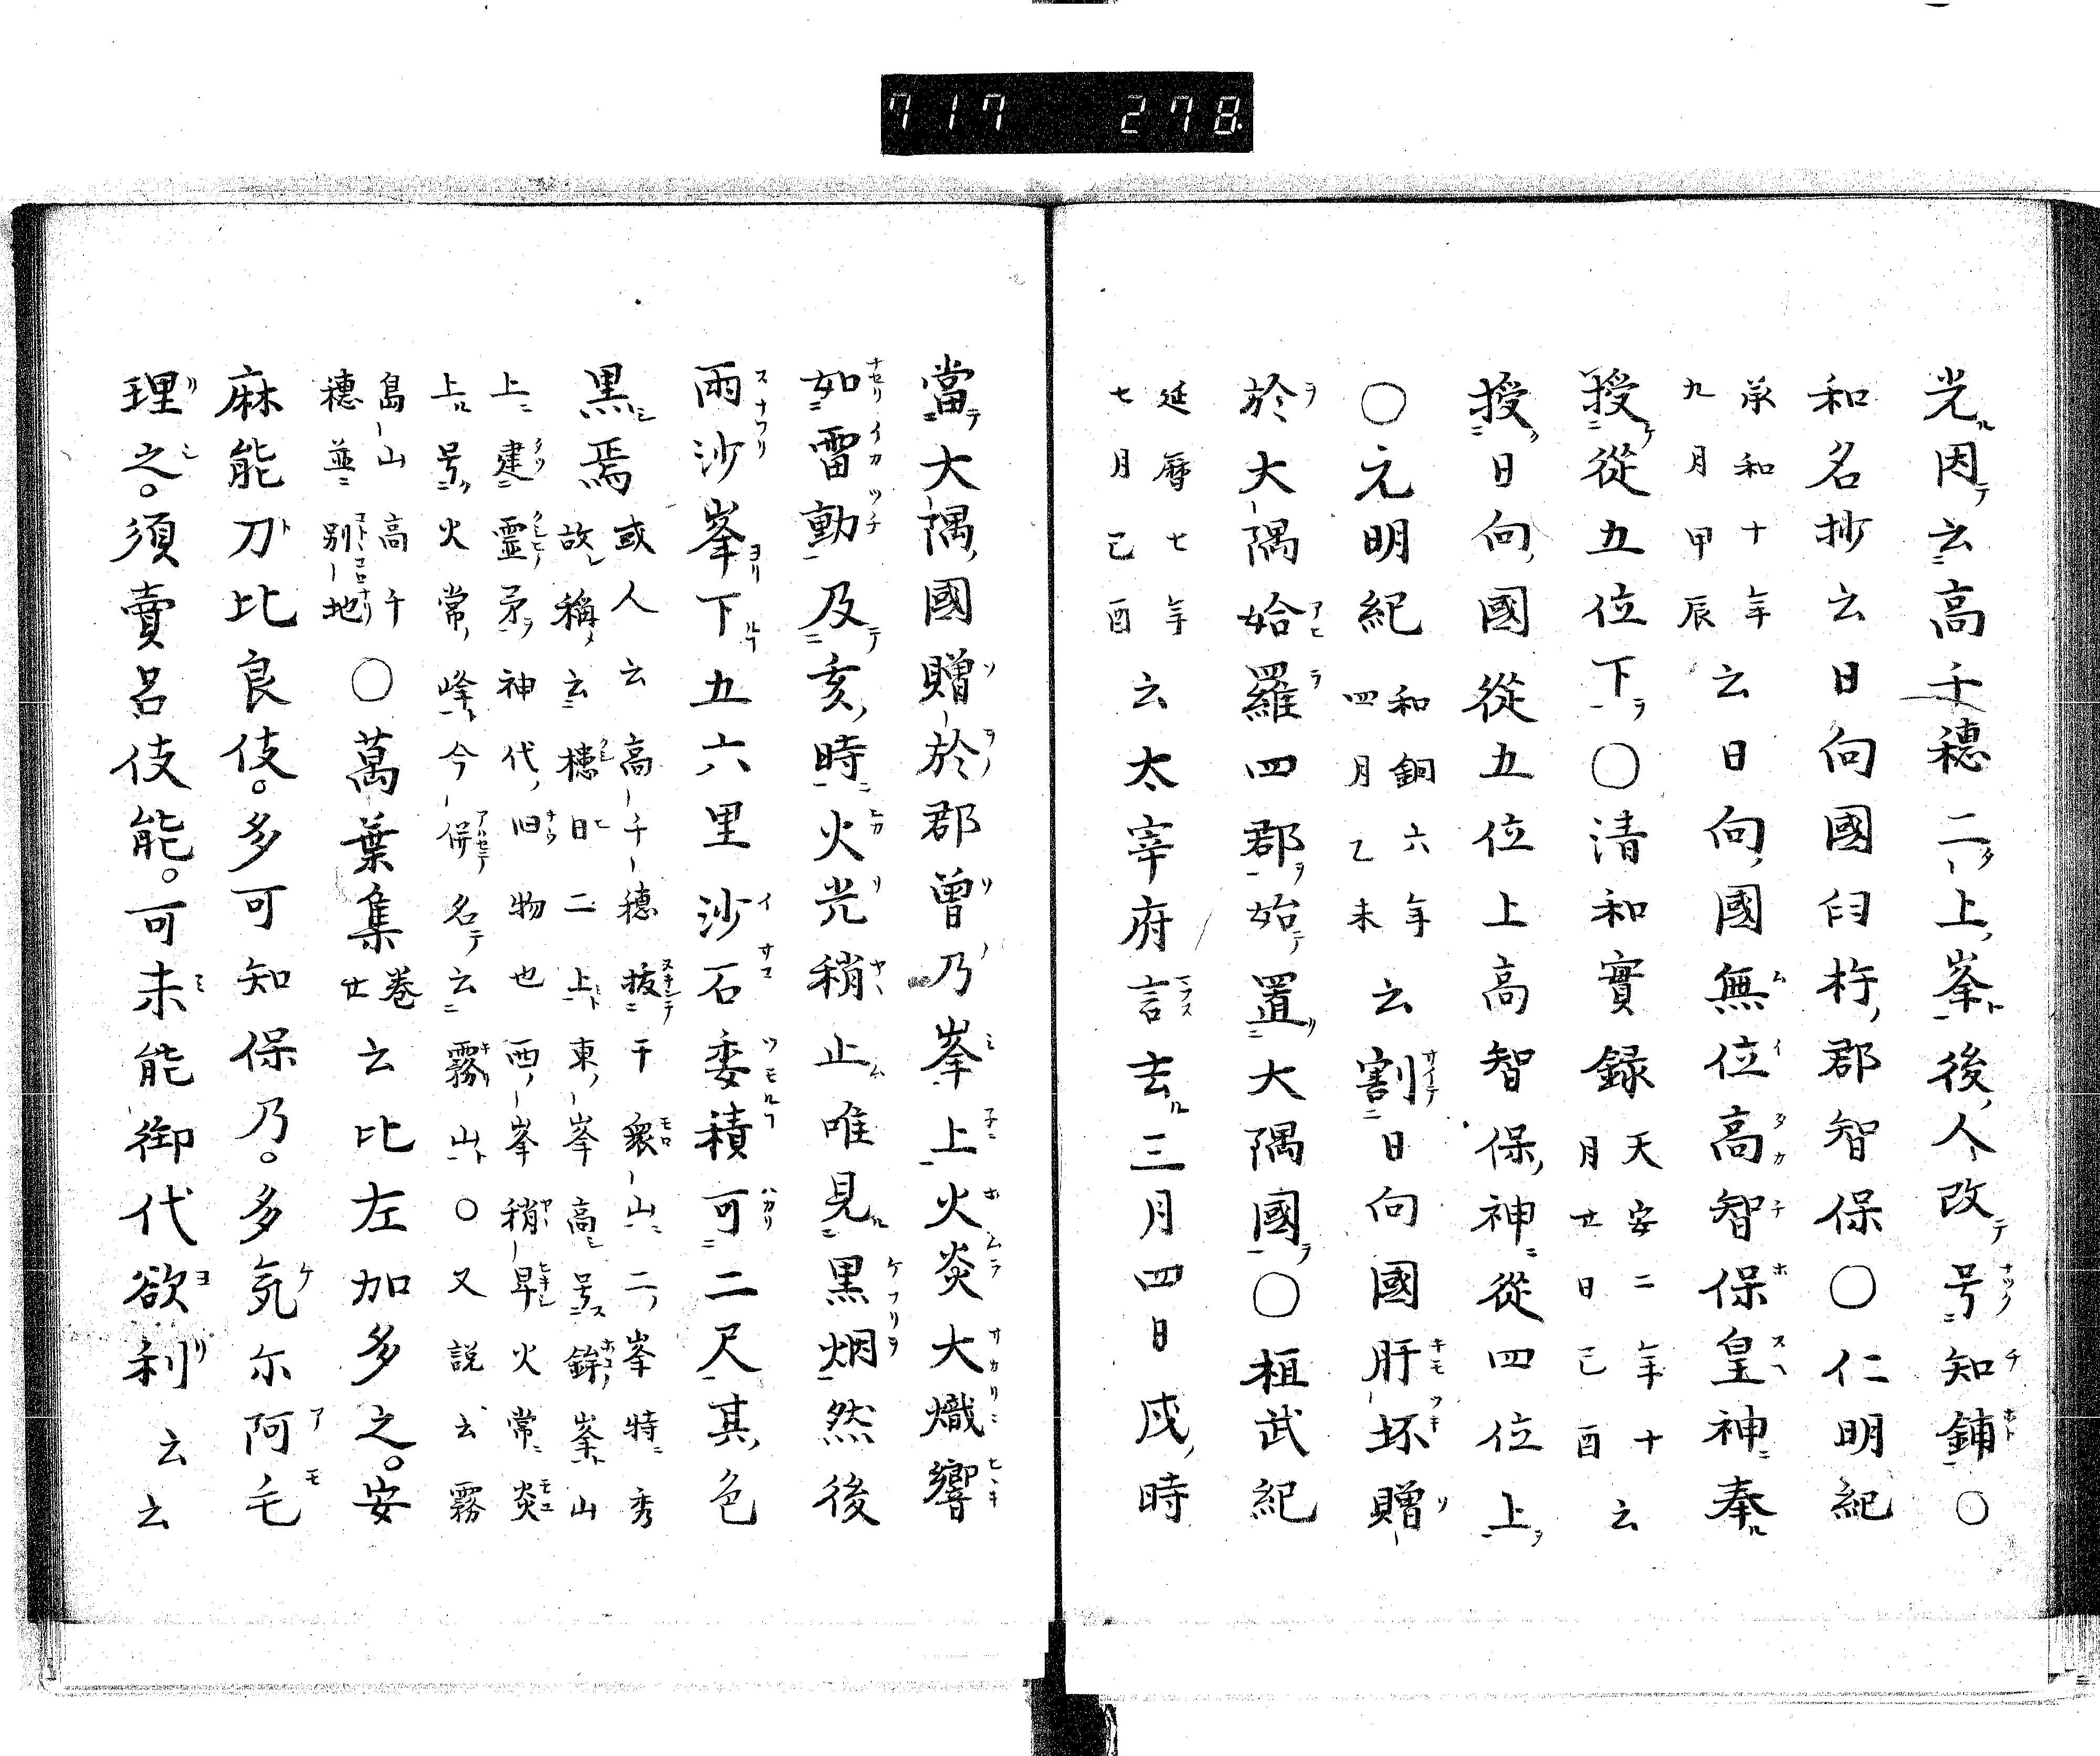 717 278
光因云高千穂二上峯後人改号知鋪〇
和名抄云日向國臼杵郡智保〇仁明紀
承和十年
九月甲辰
云日向國無位高智保皇神奉
授從五位下〇清和實録
天安二年十
月廿日己酉
云
授日向國從五位上高智保神從四位上
〇元明紀
和銅六年
四月乙未
云割日向國肝坏贈
於大隅姶羅四郡始置大隅國〇桓武紀
延暦七年
七月己酉
云太宰府言去三月四日戌時
當大隅國贈於郡曾乃峯上火炎大熾響
如雷動及亥時火光稍止唯見黒烟然後
雨沙峯下五六里沙石委積可二尺其色
黒焉
或人云高千穂抜干衆山二峯特秀
故稱云槵日二上東峯高号鉾峯山
上建霊矛神代旧物也西峯稍早火常炎
上号火常峰今併名云霧山〇又説云霧
島山高千
穂並別地
〇萬葉集
巻
廿
云比左加多之。安
麻能刀比良伎。多可知保乃。多気尓阿毛
理之。須賣呂伎能。可未能御代欲利云云